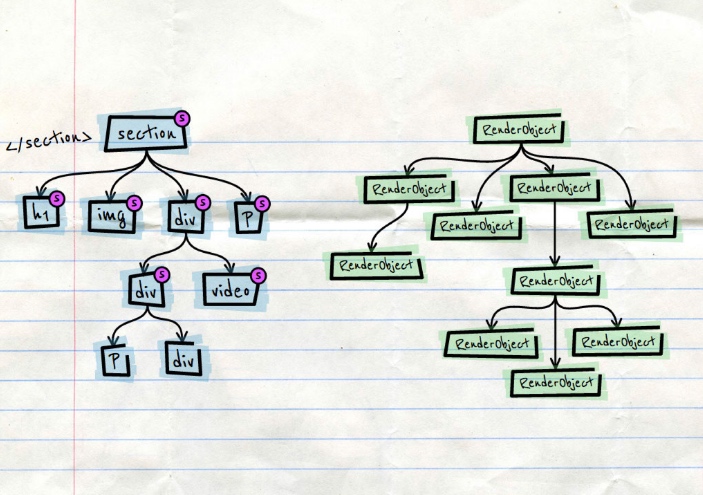 </section>
section
S
h1
S
img
S
div
S
P
S
div
S
video
S
P
div
RenderObject
RenderObject
RenderObject
RenderObject
RenderObject
RenderObject
RenderObject
RenderObject
RenderObject
RenderObject